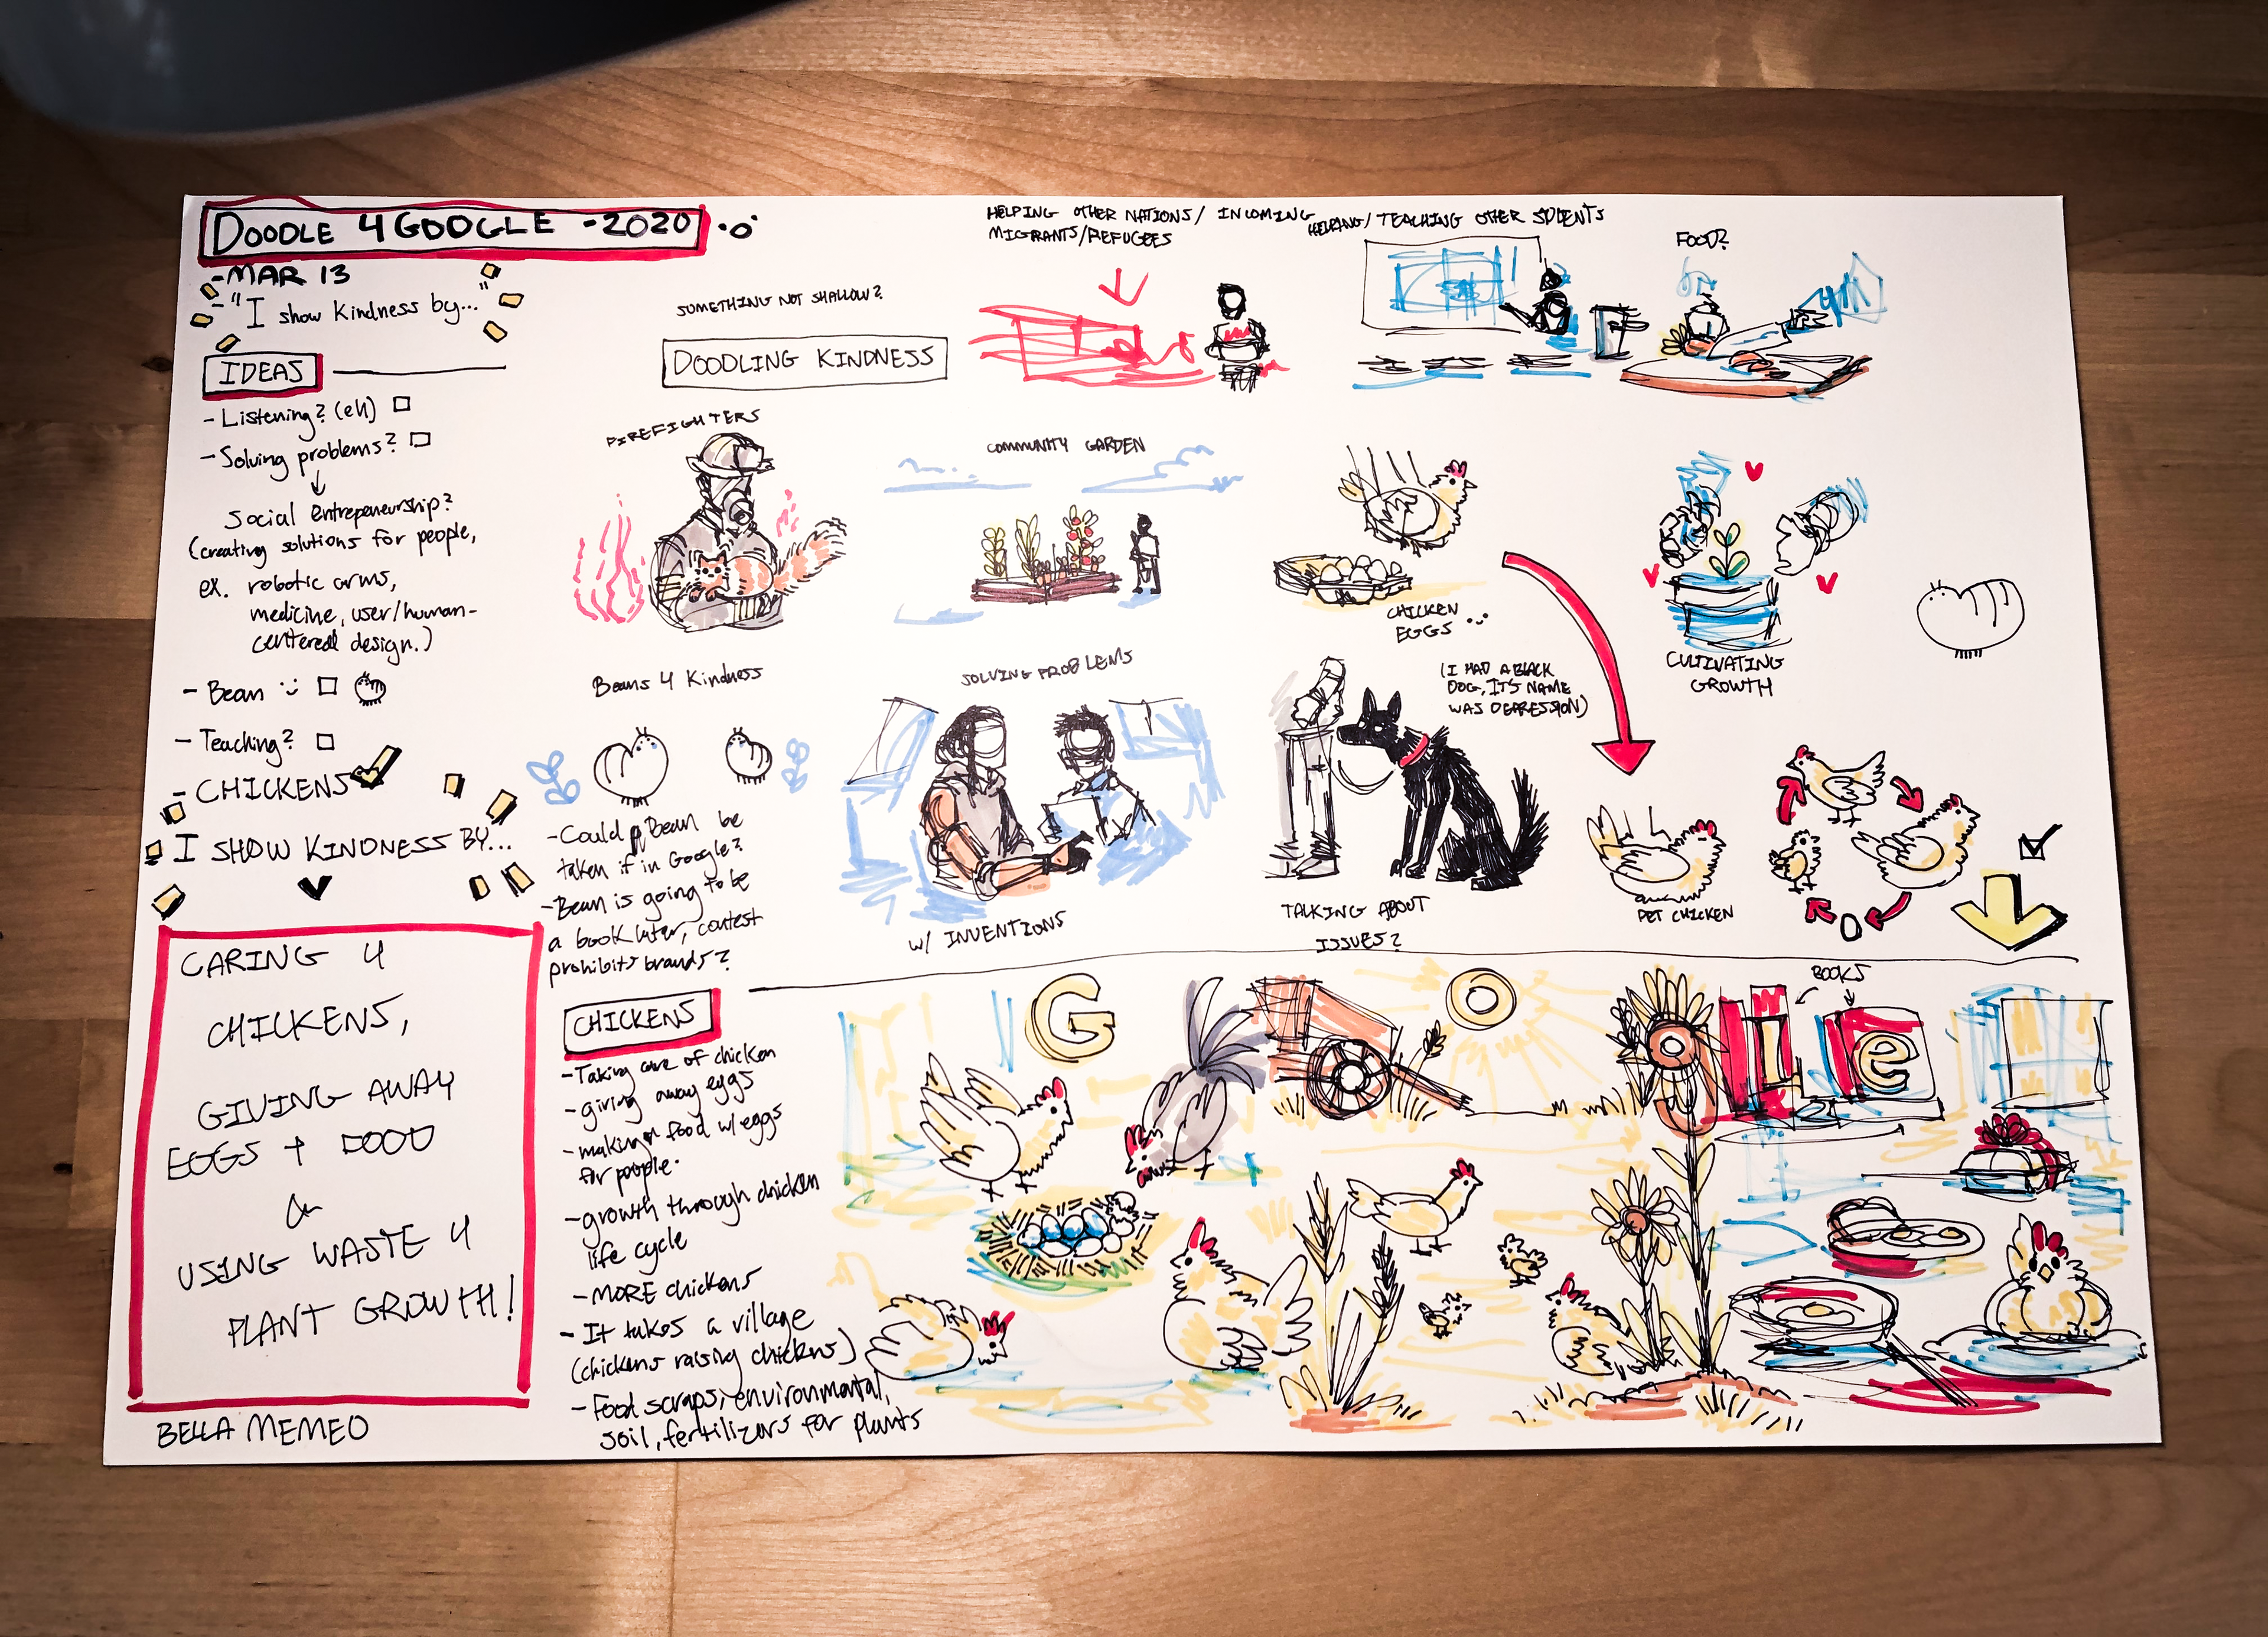 DOODLE 4 GOOGLE - 2020
- MAR 13
- "I show kindness by..."
IDEAS
- Listening? (eh)
- Solving problems?
Social Entrepeneurship?
(creating solutions for people,
ex. robotic arms,
medicine, user/human-
centered design.)
- Bean
- Teaching?
- CHICKENS
I SHOW KINDNESS BY...
CARING 4
CHICKENS,
GIVING AWAY
EGGS + FOOD
&
USING WASTE 4
PLANT GROWTH!
BELLA MEMEO
SOMETHING NOT SHALLOW?
DOODLING KINDNESS
HELPING OTHER NATIONS/ INCOMING
MIGRANTS/REFUGEES
HELPING/ TEACHING OTHER STUDENTS
FOOD?
FIREFIGHTERS
COMMUNITY GARDEN
CHICKEN
EGGS
CULTIVATING
GROWTH
Beans 4 Kindness
- Could Bean be
taken if in Google?
- Bean is going to be
a book later, contest
prohibits brands?
SOLVING PROBLEMS
W/ INVENTIONS
(I HAD A BLACK
DOG, IT'S NAME
WAS DEPRESSION)
TALKING ABOUT
ISSUES?
PET CHICKEN
CHICKENS
- Taking care of chicken
- giving away eggs
- making food w/ eggs
for people.
- growth through chicken
life cycle
- MORE chickens
- It takes a village
(chickens raising chickens)
- Food scraps, environmental,
soil, fertilizers for plants
BOOKS
G O g l e